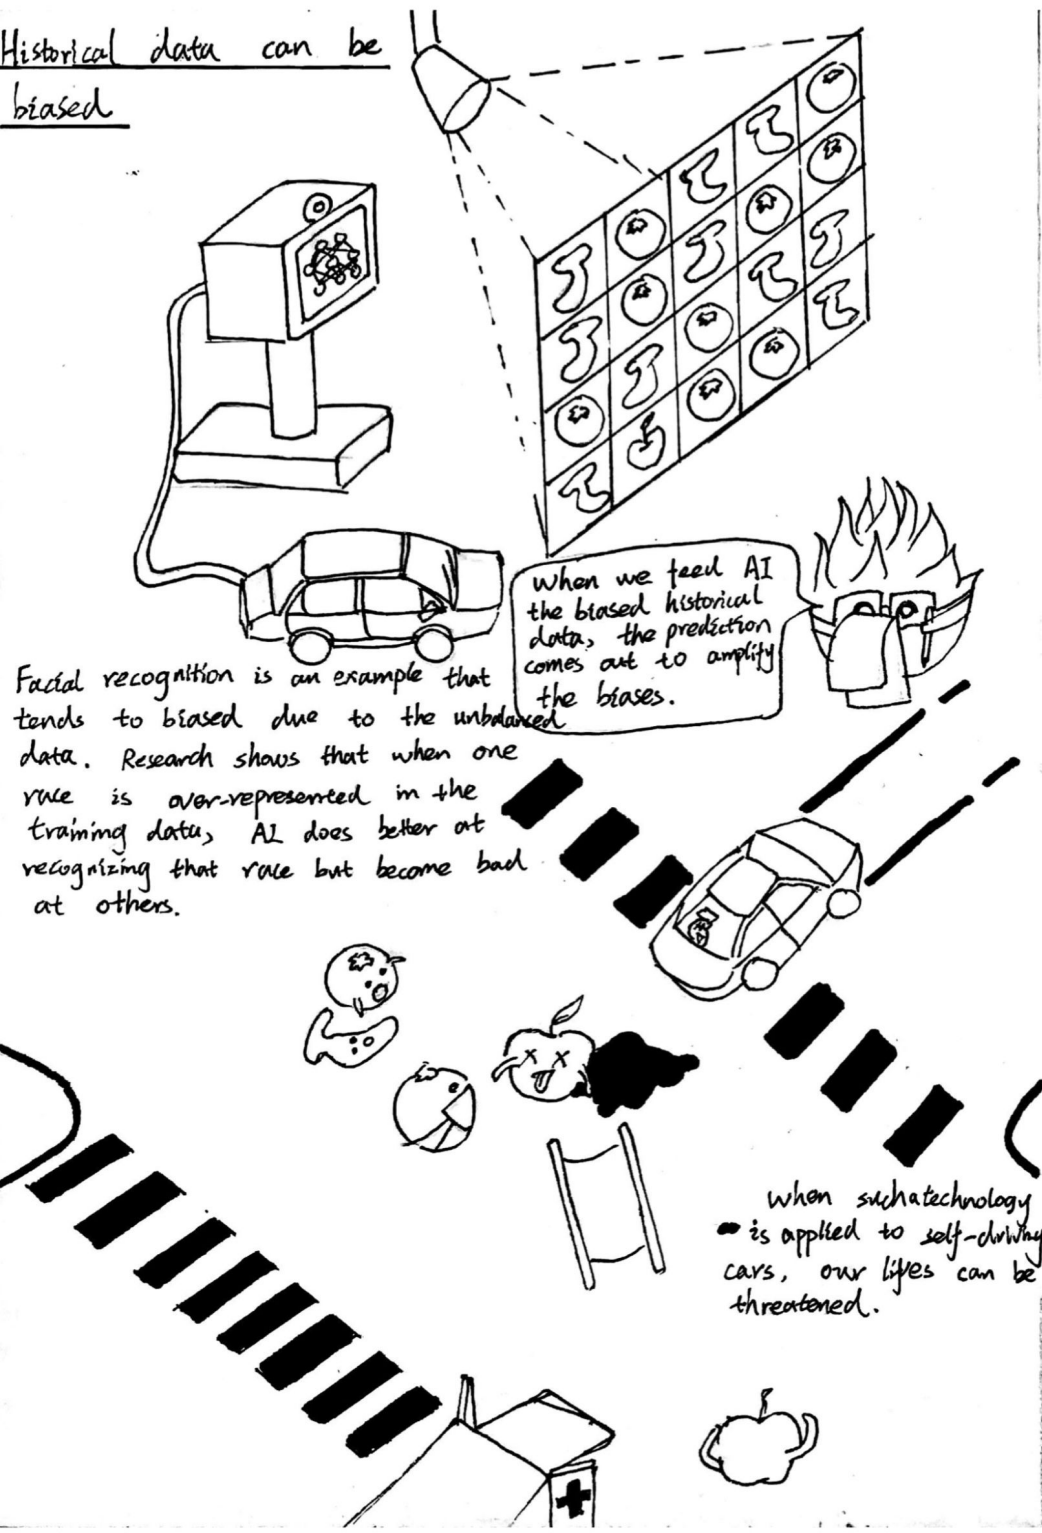 Historical data can be
biased
When we feed AI
the biased historical
data, the prediction
comes out to amplify
the biases.
Facial recognition is an example that
tends to biased due to the unbalanced
data. Research shows that when one
race is over-represented in the
training data, AI does better at
recognizing that race but become bad
at others.
When such a technology
is applied to self-driving
cars, our lifes can be
threatened.